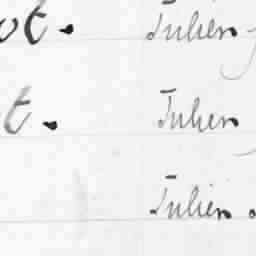 ot. Julien
t. Julien
Julien